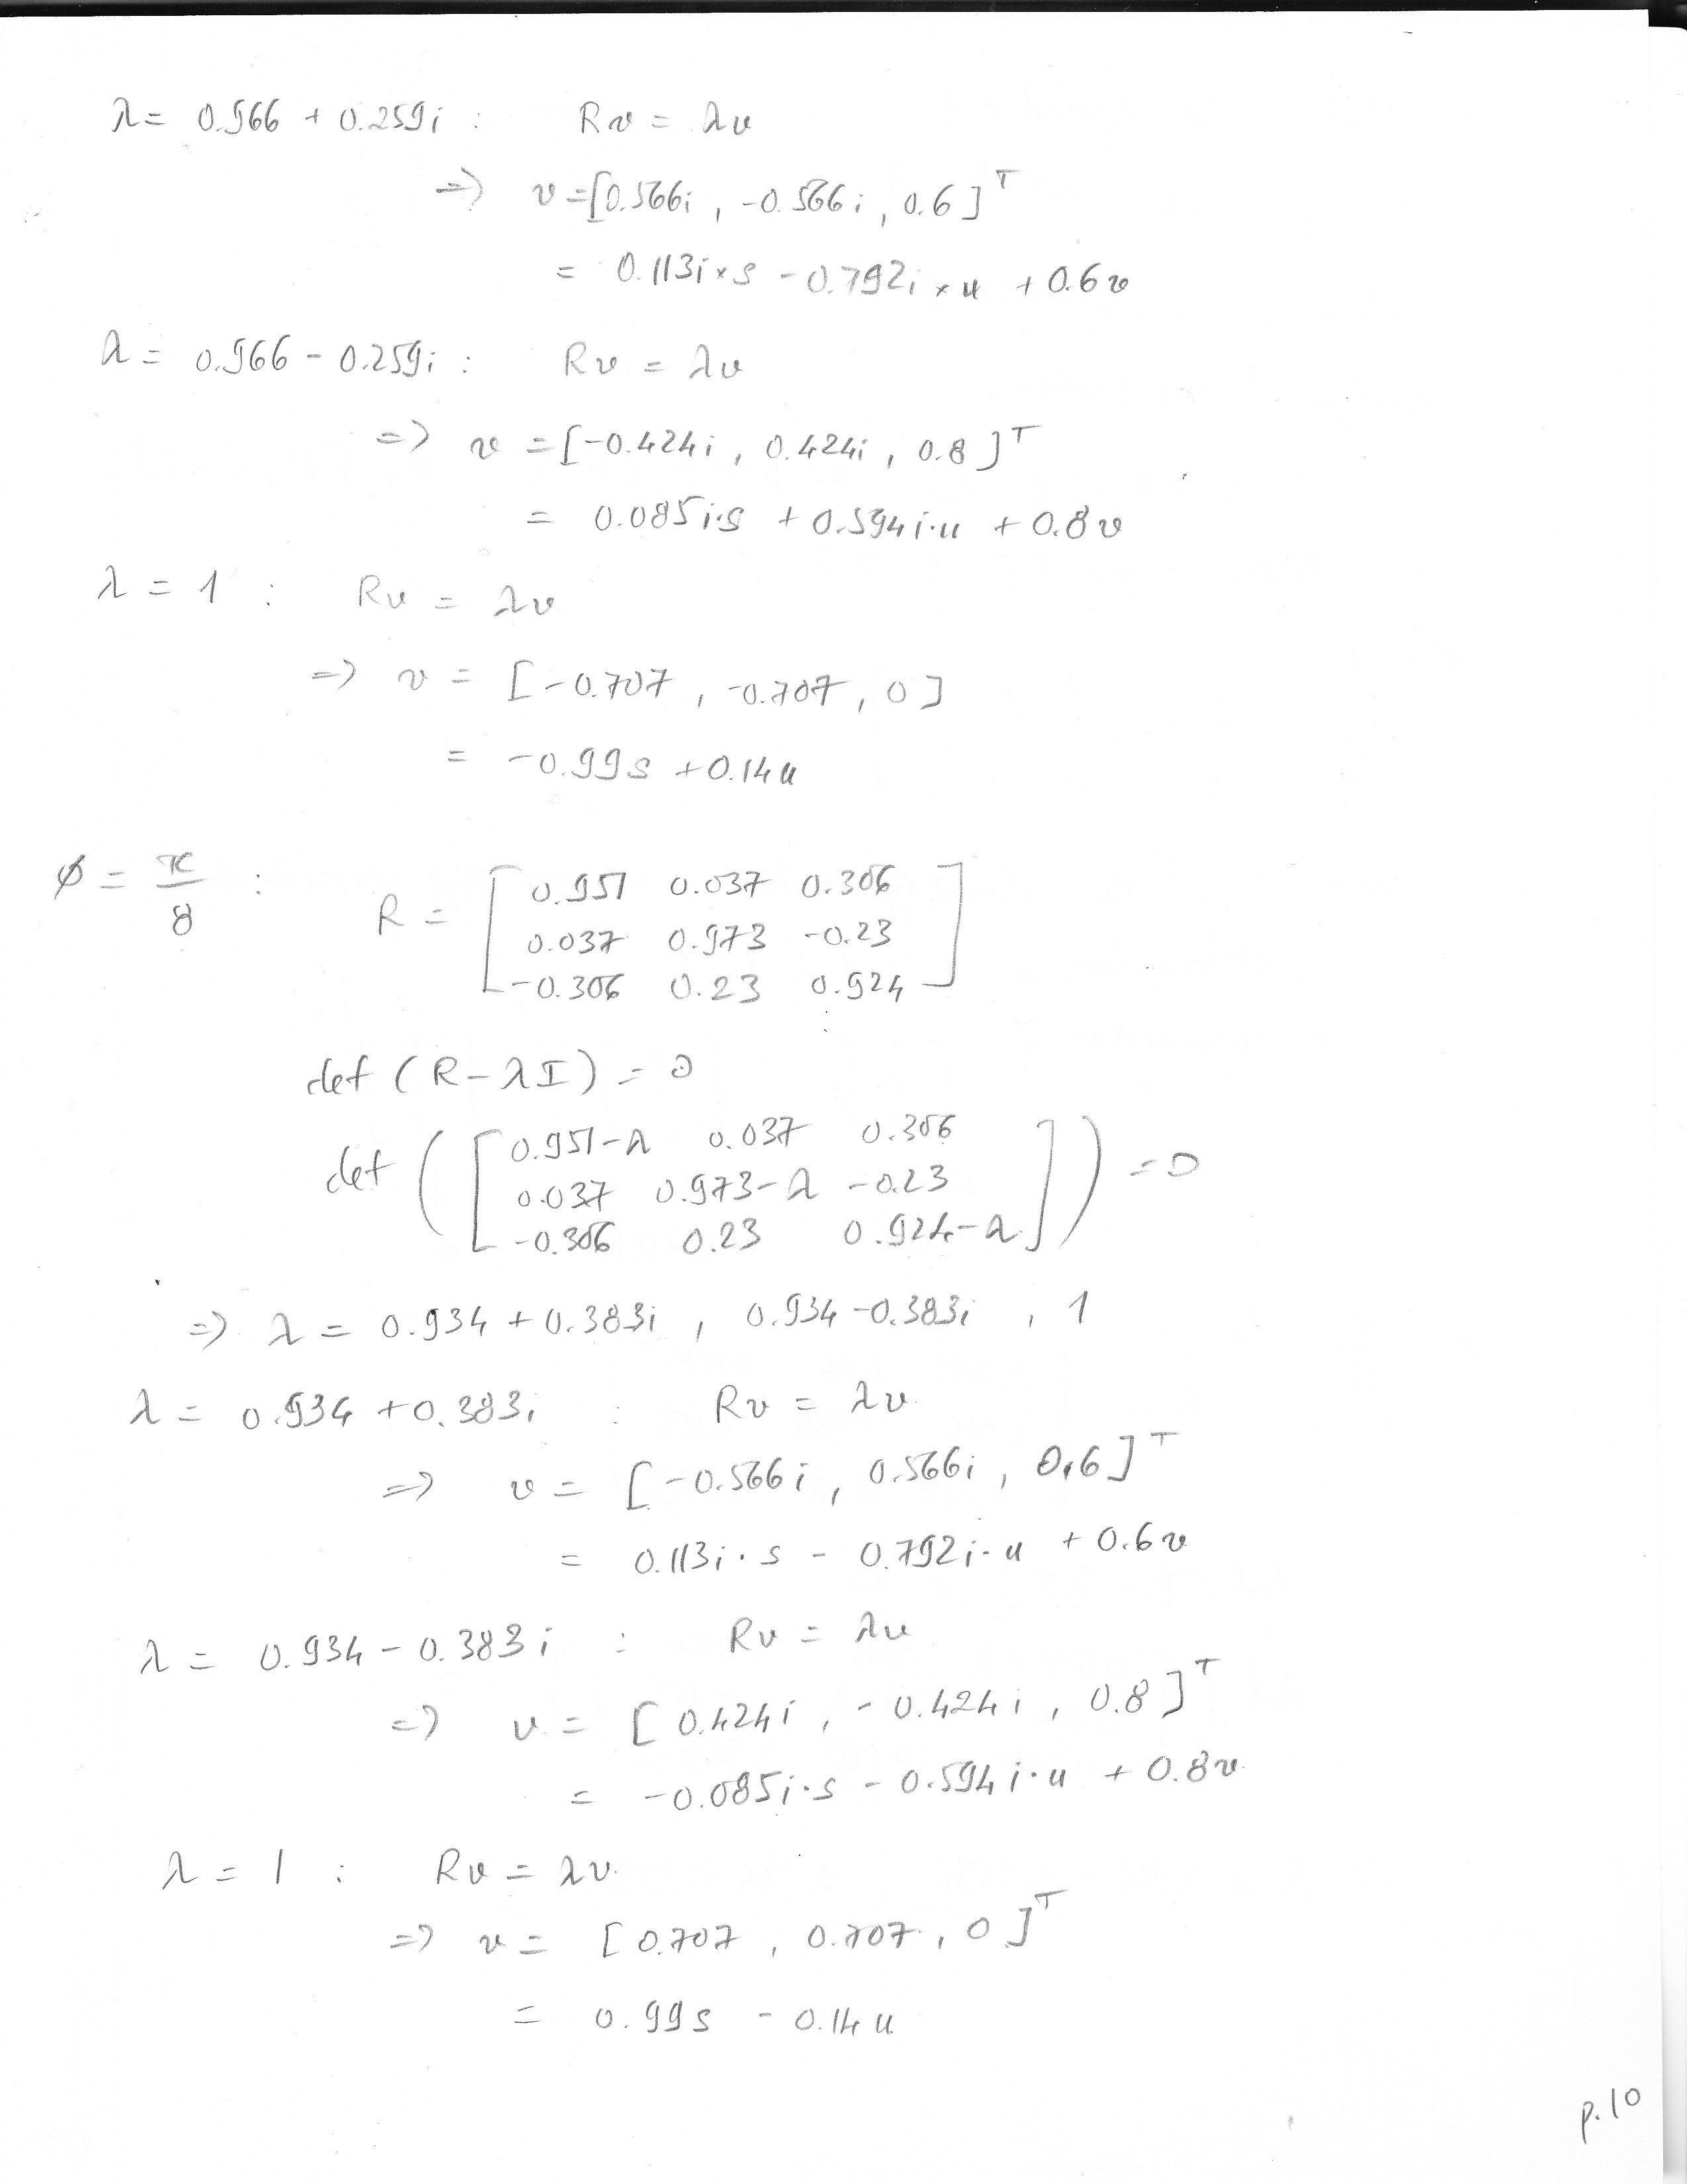 λ = 0.966 + 0.259i : Rv = λv
=> v = [0.566i , -0.566i , 0.6]ᵀ
= 0.113i × s - 0.792i × u + 0.6v
λ = 0.966 - 0.259i : Rv = λv
=> v = [-0.424i , 0.424i , 0.8]ᵀ
= 0.085i·s + 0.594i·u + 0.8v
λ = 1 : Rv = λv
=> v = [-0.707 , -0.707 , 0]
= -0.99s + 0.14u
ϕ = π/8 : R = [0.951 0.037 0.306
0.037 0.973 -0.23
-0.306 0.23 0.924]
det (R - λI) = 0
det ([0.951-λ 0.037 0.306
0.037 0.973-λ -0.23
-0.306 0.23 0.924-λ]) = 0
=> λ = 0.934 + 0.383i , 0.934 - 0.383i , 1
λ = 0.934 + 0.383i : Rv = λv
=> v = [-0.566i , 0.566i , 0.6]ᵀ
= 0.113i·s - 0.792i·u + 0.6v
λ = 0.934 - 0.383i : Rv = λv
=> v = [0.424i , -0.424i , 0.8]ᵀ
= -0.085i·s - 0.594i·u + 0.8v
λ = 1 : Rv = λv
=> v = [0.707 , 0.707 , 0]ᵀ
= 0.99s - 0.14u
p.10